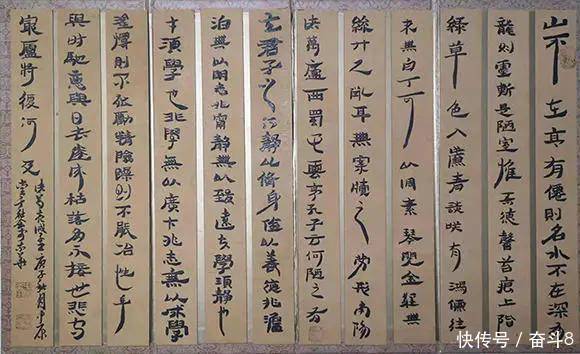 山不在高有僊則名水不在深有
龍則靈斯是陋室惟吾德馨苔痕上階
綠草色入簾青談咲有鴻儒往
來無白丁可以調素琴閱金經無
絲竹之亂耳無案牘之勞形南陽
諸葛廬西蜀子雲亭孔子云何陋之有
夫君子之行靜以脩身儉以養德非澹
泊無以明志非甯靜無以致遠夫學須靜也
才須學也非學無以廣才非志無以成學
淫慢則不能勵精險躁則不能冶性年
與時馳意與日去遂成枯落多不接世悲守
窮廬將復何及
庚子秋月中原
快传号 / 奋斗8